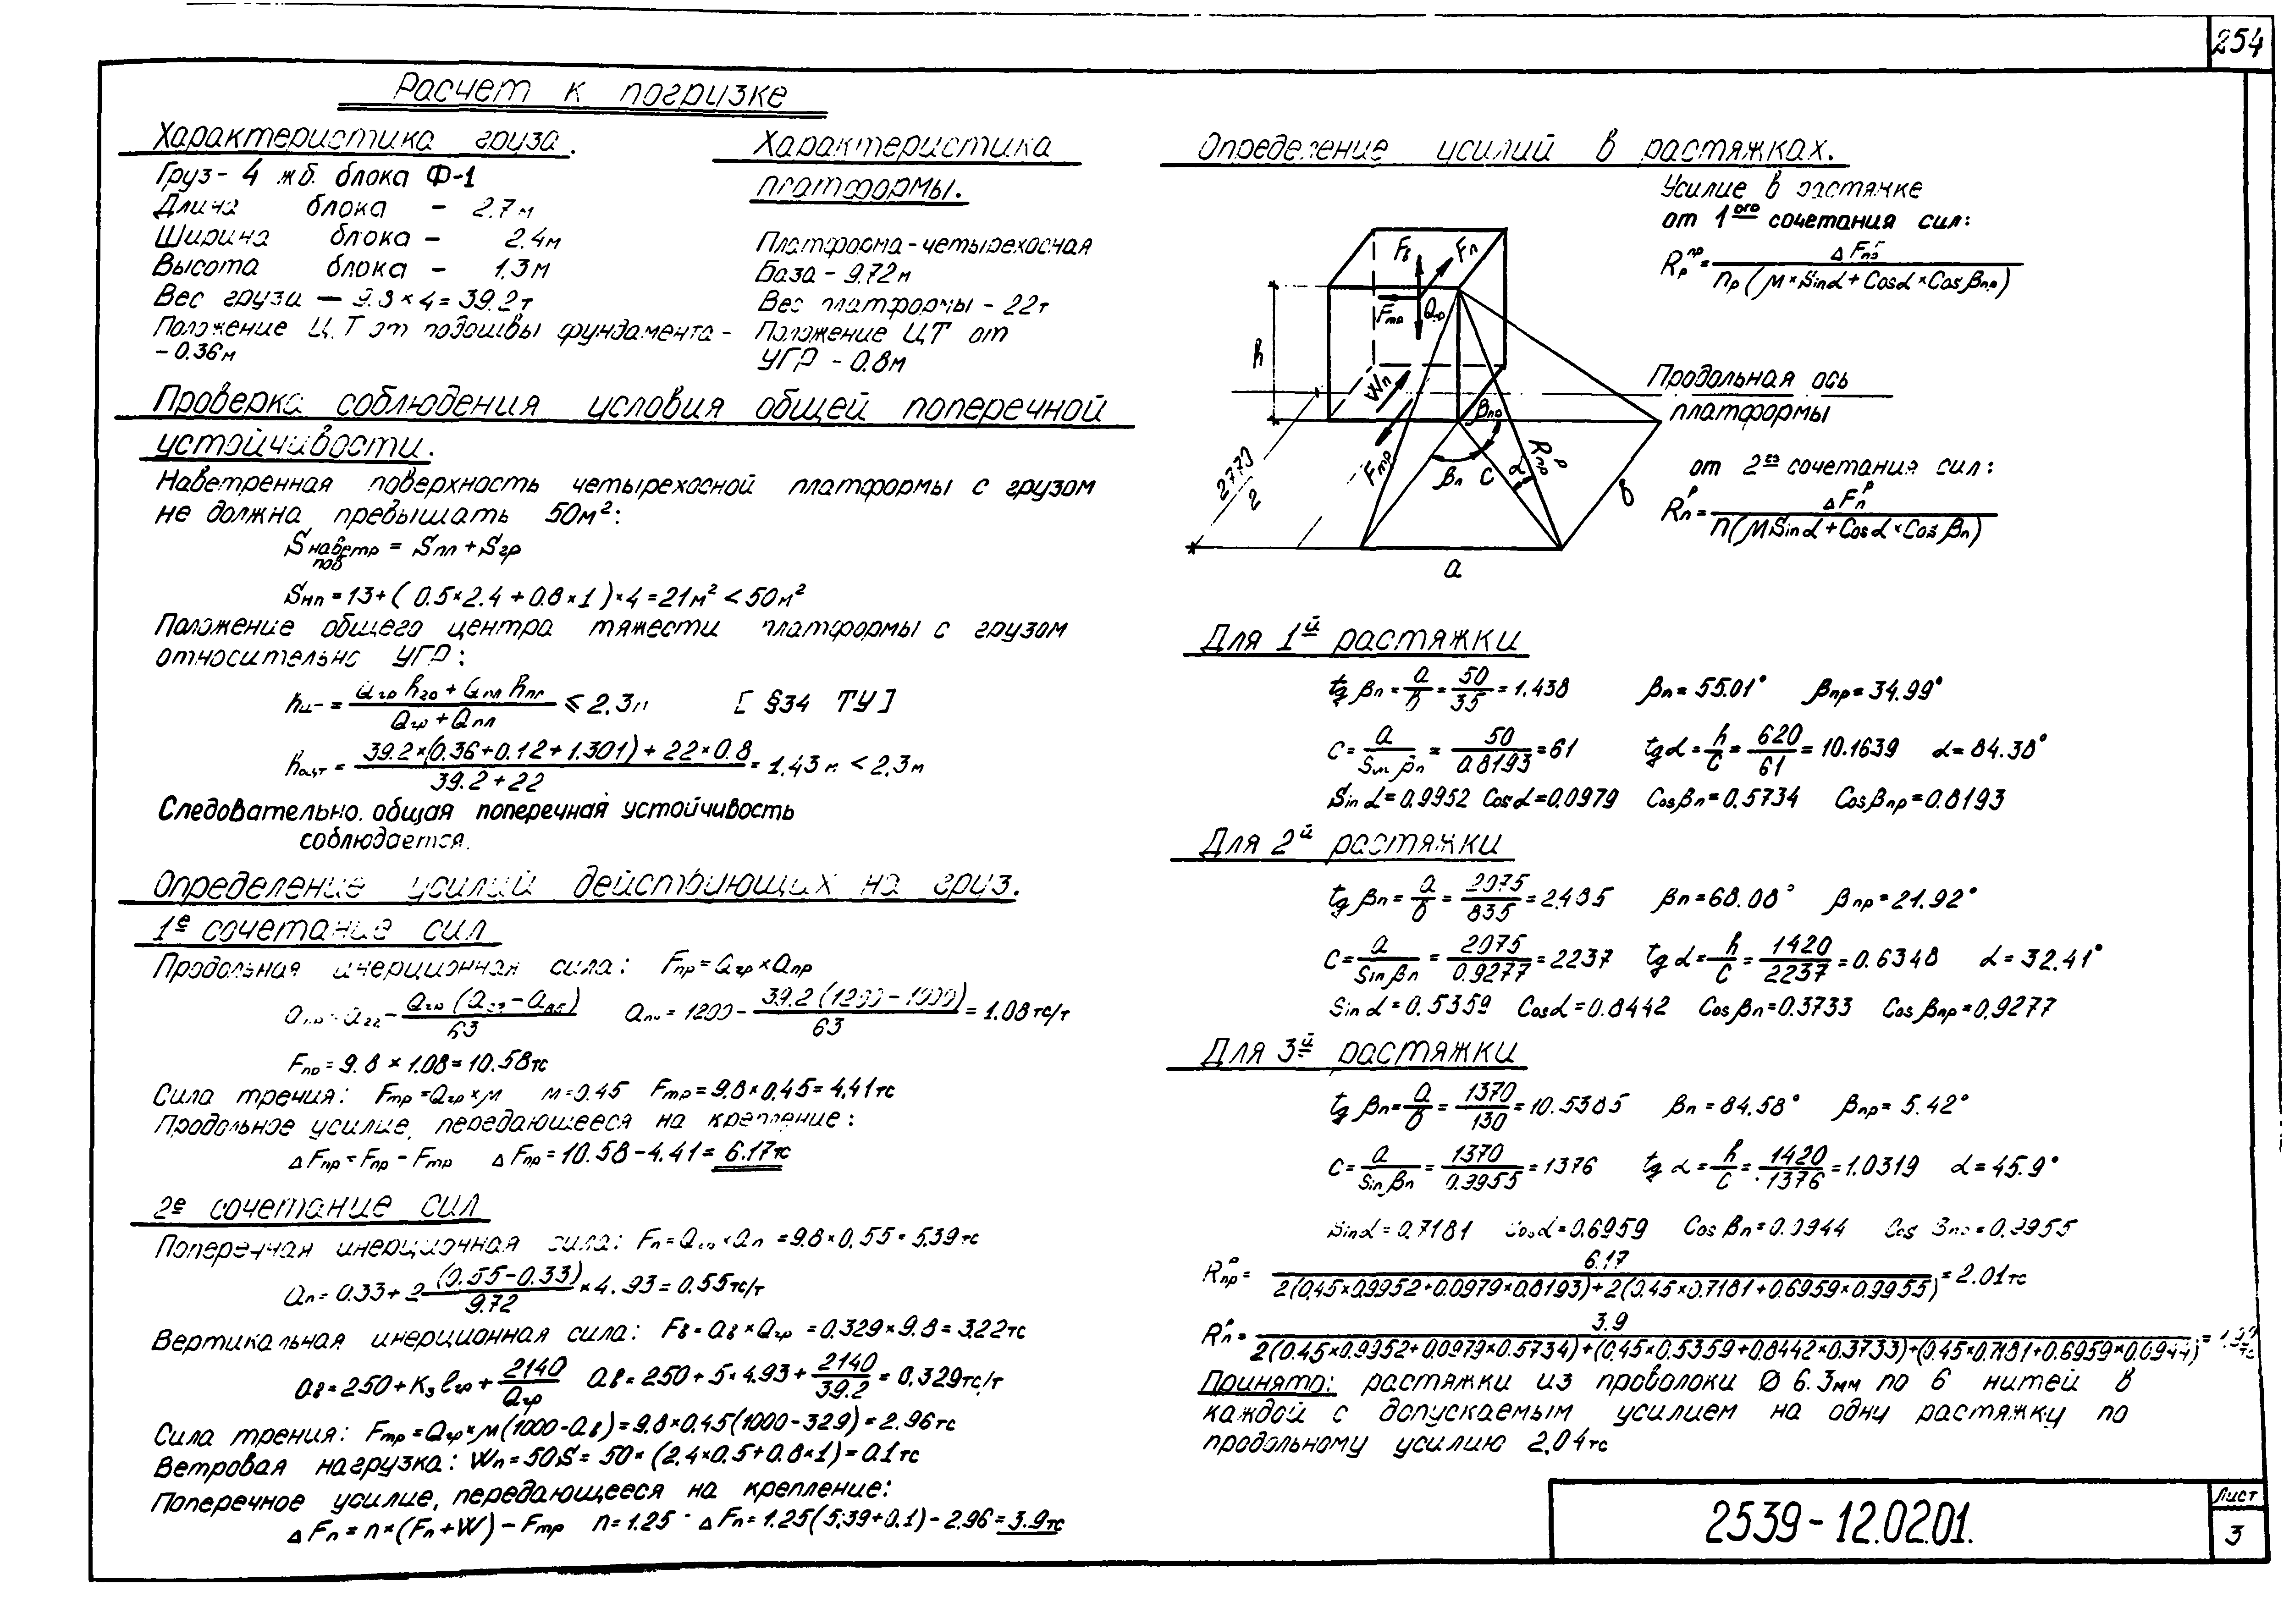 254
Расчет к погрузке
Характеристика груза.
Груз - 4 жб. блока Ф-1
Длина блока - 2.7м
Ширина блока - 2.4м
Высота блока - 1.3м
Вес груза — 9.8 × 4 = 39.2т
Положение Ц.Т от подошвы фундамента -
- 0.36м
Характеристика
платформы.
Платформа - четырехосная
База - 9.72м
Вес платформы - 22т
Положение ЦТ от
УГР - 0.8м
Проверка соблюдения условия общей поперечной
устойчивости.
Наветренная поверхность четырехосной платформы с грузом
не должна превышать 50м²:
Sнаветр пов = Sпл + Sгр
Sнп = 13 + ( 0.5×2.4 + 0.8×1 )×4 = 21м² < 50м²
Положение общего центра тяжести платформы с грузом
относительно УГР:
= (Qгр hгр + Qпл hпл) / (Qгр + Qпл) ≤ 2.3м [ §34 ТУ ]
hоцт = (39.2×(0.36+0.12+1.301) + 22×0.8) / (39.2+22) = 1.43м < 2.3м
Следовательно. общая поперечная устойчивость
соблюдается.
Определение усилий действующих на груз.
1е сочетание сил
Продольная инерционная сила: Fпр = Qгр × aпр
aпр = a22 - Qгр (a22 - a85) / 63 aпр = 1200 - 39.2 (1200 - 1000) / 63 = 1.08 тс/т
Fпр = 9.8 × 1.08 = 10.58тс
Сила трения: Fтр = Qгр × м м = 0.45 Fтр = 9.8 × 0.45 = 4.41тс
Продольное усилие, передающееся на крепление:
Δ Fпр = Fпр - Fтр Δ Fпр = 10.58 - 4.41 = 6.17тс
2е сочетание сил
Поперечная инерционная сила: Fп = Qгр × aп = 9.8 × 0.55 = 5.39тс
aп = 0.33 + 2 (0.55 - 0.33) / 9.72 × 4.93 = 0.55тс/т
Вертикальная инерционная сила: Fв = aв × Qгр = 0.329 × 9.8 = 3.22тс
aв = 250 + Kз lгр + 2140 / Qгр aв = 250 + 5 × 4.93 + 2140 / 39.2 = 0.329тс/т
Сила трения: Fтр = Qгр × м (1000 - aв) = 9.8 × 0.45 (1000 - 329) = 2.96тс
Ветровая нагрузка: Wп = 50S = 50 × (2.4×0.5 + 0.8×1) = 0.1тс
Поперечное усилие, передающееся на крепление:
Δ Fп = n × (Fп + W) - Fтр n = 1.25 Δ Fп = 1.25 (5.39 + 0.1) - 2.96 = 3.9тс
Определение усилий в растяжках.
Усилие в растяжке
от 1ого сочетания сил:
Rрпр = Δ Fпр / nр ( м × Sinα + Cosα × Cos βпр )
Fв
Fп
Fтр
Qгр
h
Wп
βпр
Fтр
βп
C
α
Rпрр
в
2773 / 2
a
Продольная ось
платформы
от 2го сочетания сил:
Rпр = Δ Fпр / n ( м Sinα + Cosα × Cos βп )
Для 1й растяжки
tg βп = a / в = 50 / 35 = 1.438 βп = 55.01° βпр = 34.99°
C = a / Sin βп = 50 / 0.8193 = 61 tg α = h / C = 620 / 61 = 10.1639 α = 84.38°
Sin α = 0.9952 Cosα = 0.0979 Cosβп = 0.5734 Cosβпр = 0.8193
Для 2й растяжки
tg βп = a / в = 2075 / 835 = 2.485 βп = 68.08° βпр = 21.92°
C = a / Sin βп = 2075 / 0.9277 = 2237 tg α = h / C = 1420 / 2237 = 0.6348 α = 32.41°
Sin α = 0.5359 Cosα = 0.8442 Cos βп = 0.3733 Cos βпр = 0.9277
Для 3й растяжки
tg βп = a / в = 1370 / 130 = 10.5385 βп = 84.58° βпр = 5.42°
C = a / Sin βп = 1370 / 0.9955 = 1376 tg α = h / C = 1420 / 1376 = 1.0319 α = 45.9°
Sinα = 0.7181 Cosα = 0.6959 Cos βп = 0.0944 Cos βпр = 0.9955
Rпрр = 6.17 / 2(0.45×0.9952+0.0979×0.8193)+2(0.45×0.7181+0.6959×0.9955) = 2.01тс
Rпр = 3.9 / 2(0.45×0.9952+0.0979×0.5734)+(0.45×0.5359+0.8442×0.3733)+(0.45×0.7181+0.6959×0.0944) =
Принято: растяжки из проволоки Ø 6.3мм по 6 нитей в
каждой с допускаемым усилием на одну растяжку по
продольному усилию 2.04тс
2539-12.02.01.
Лист
3